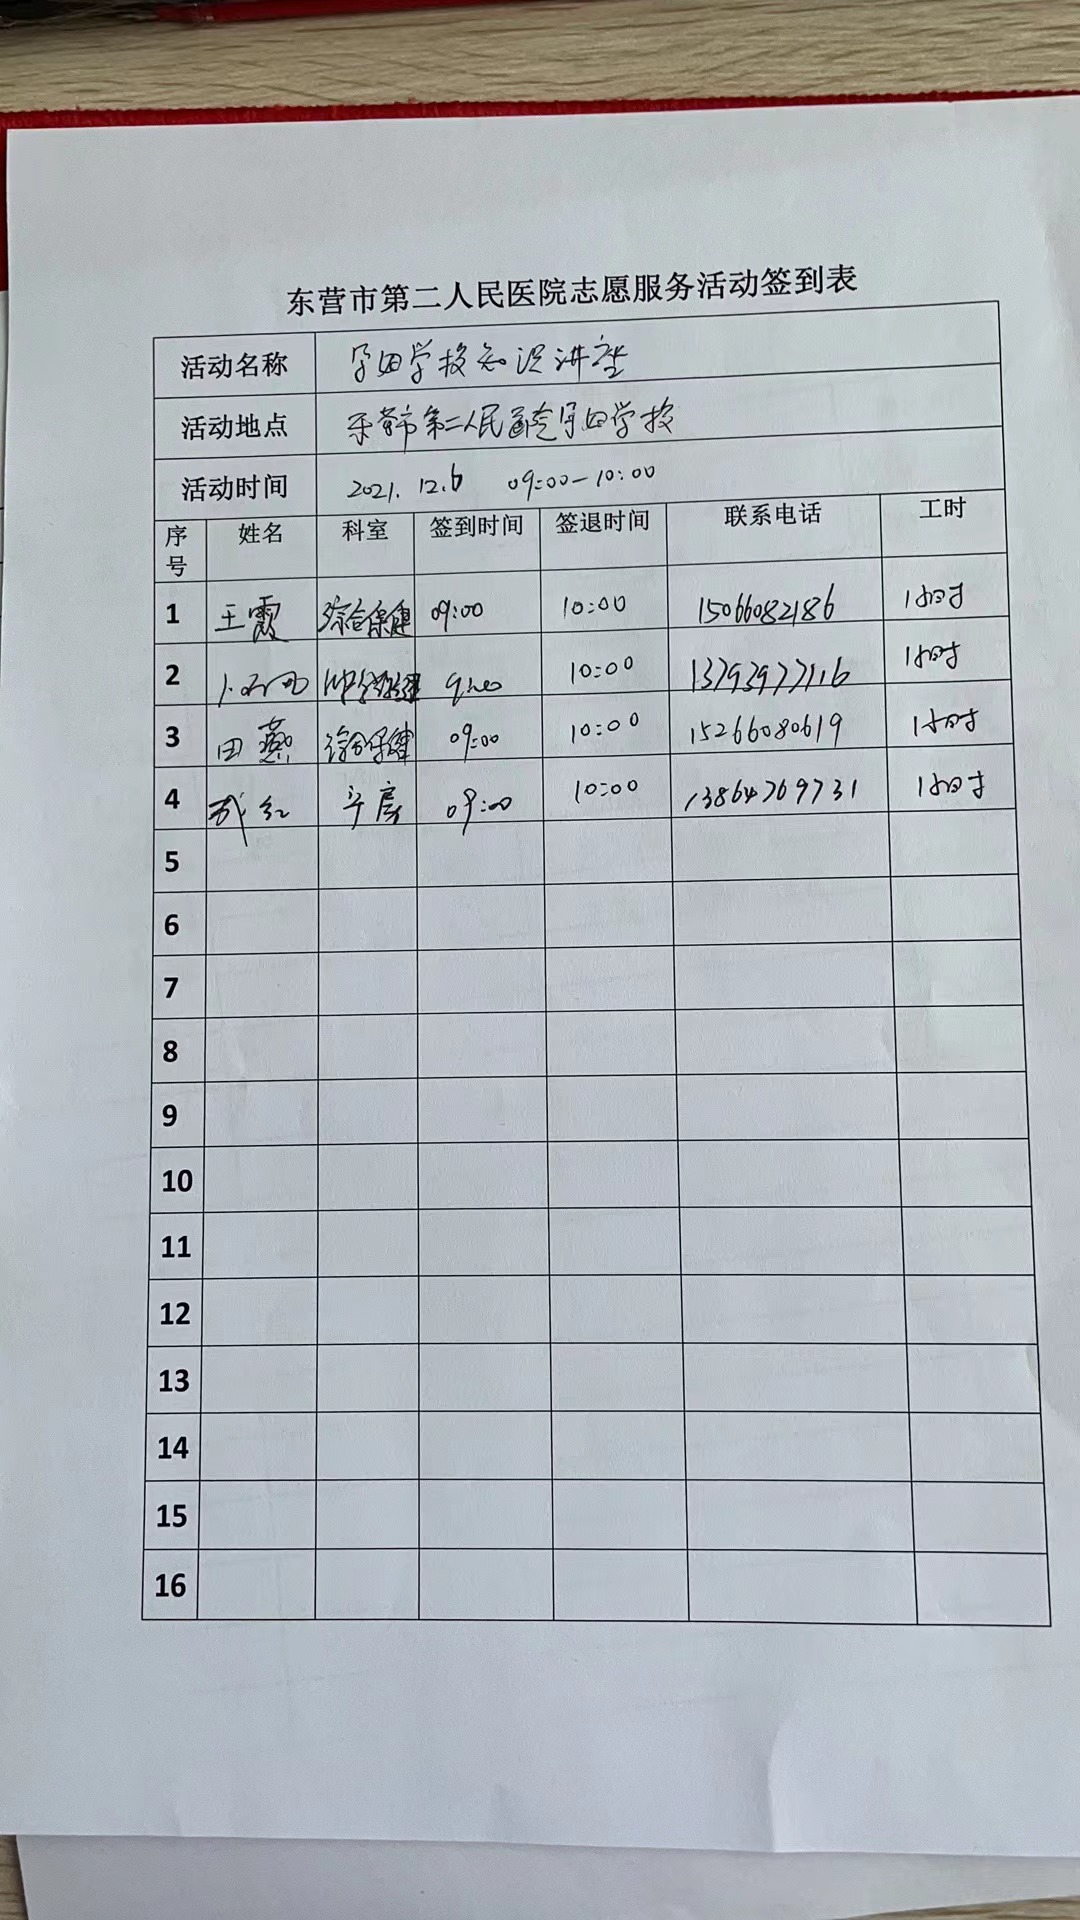 东营市第二人民医院志愿服务活动签到表
活动名称 孕妇学校知识讲座
活动地点 东营市第二人民医院孕妇学校
活动时间 2021.12.6 09:00-10:00
序号 姓名 科室 签到时间 签退时间 联系电话 工时
1 王霞 综合保健 09:00 10:00 15066082186 1小时
2 10:00 13793977116 1小时
3 田燕 综合保健 09:00 10:00 15266080619 1小时
4 09:00 10:00 13864769731 1小时
5
6
7
8
9
10
11
12
13
14
15
16